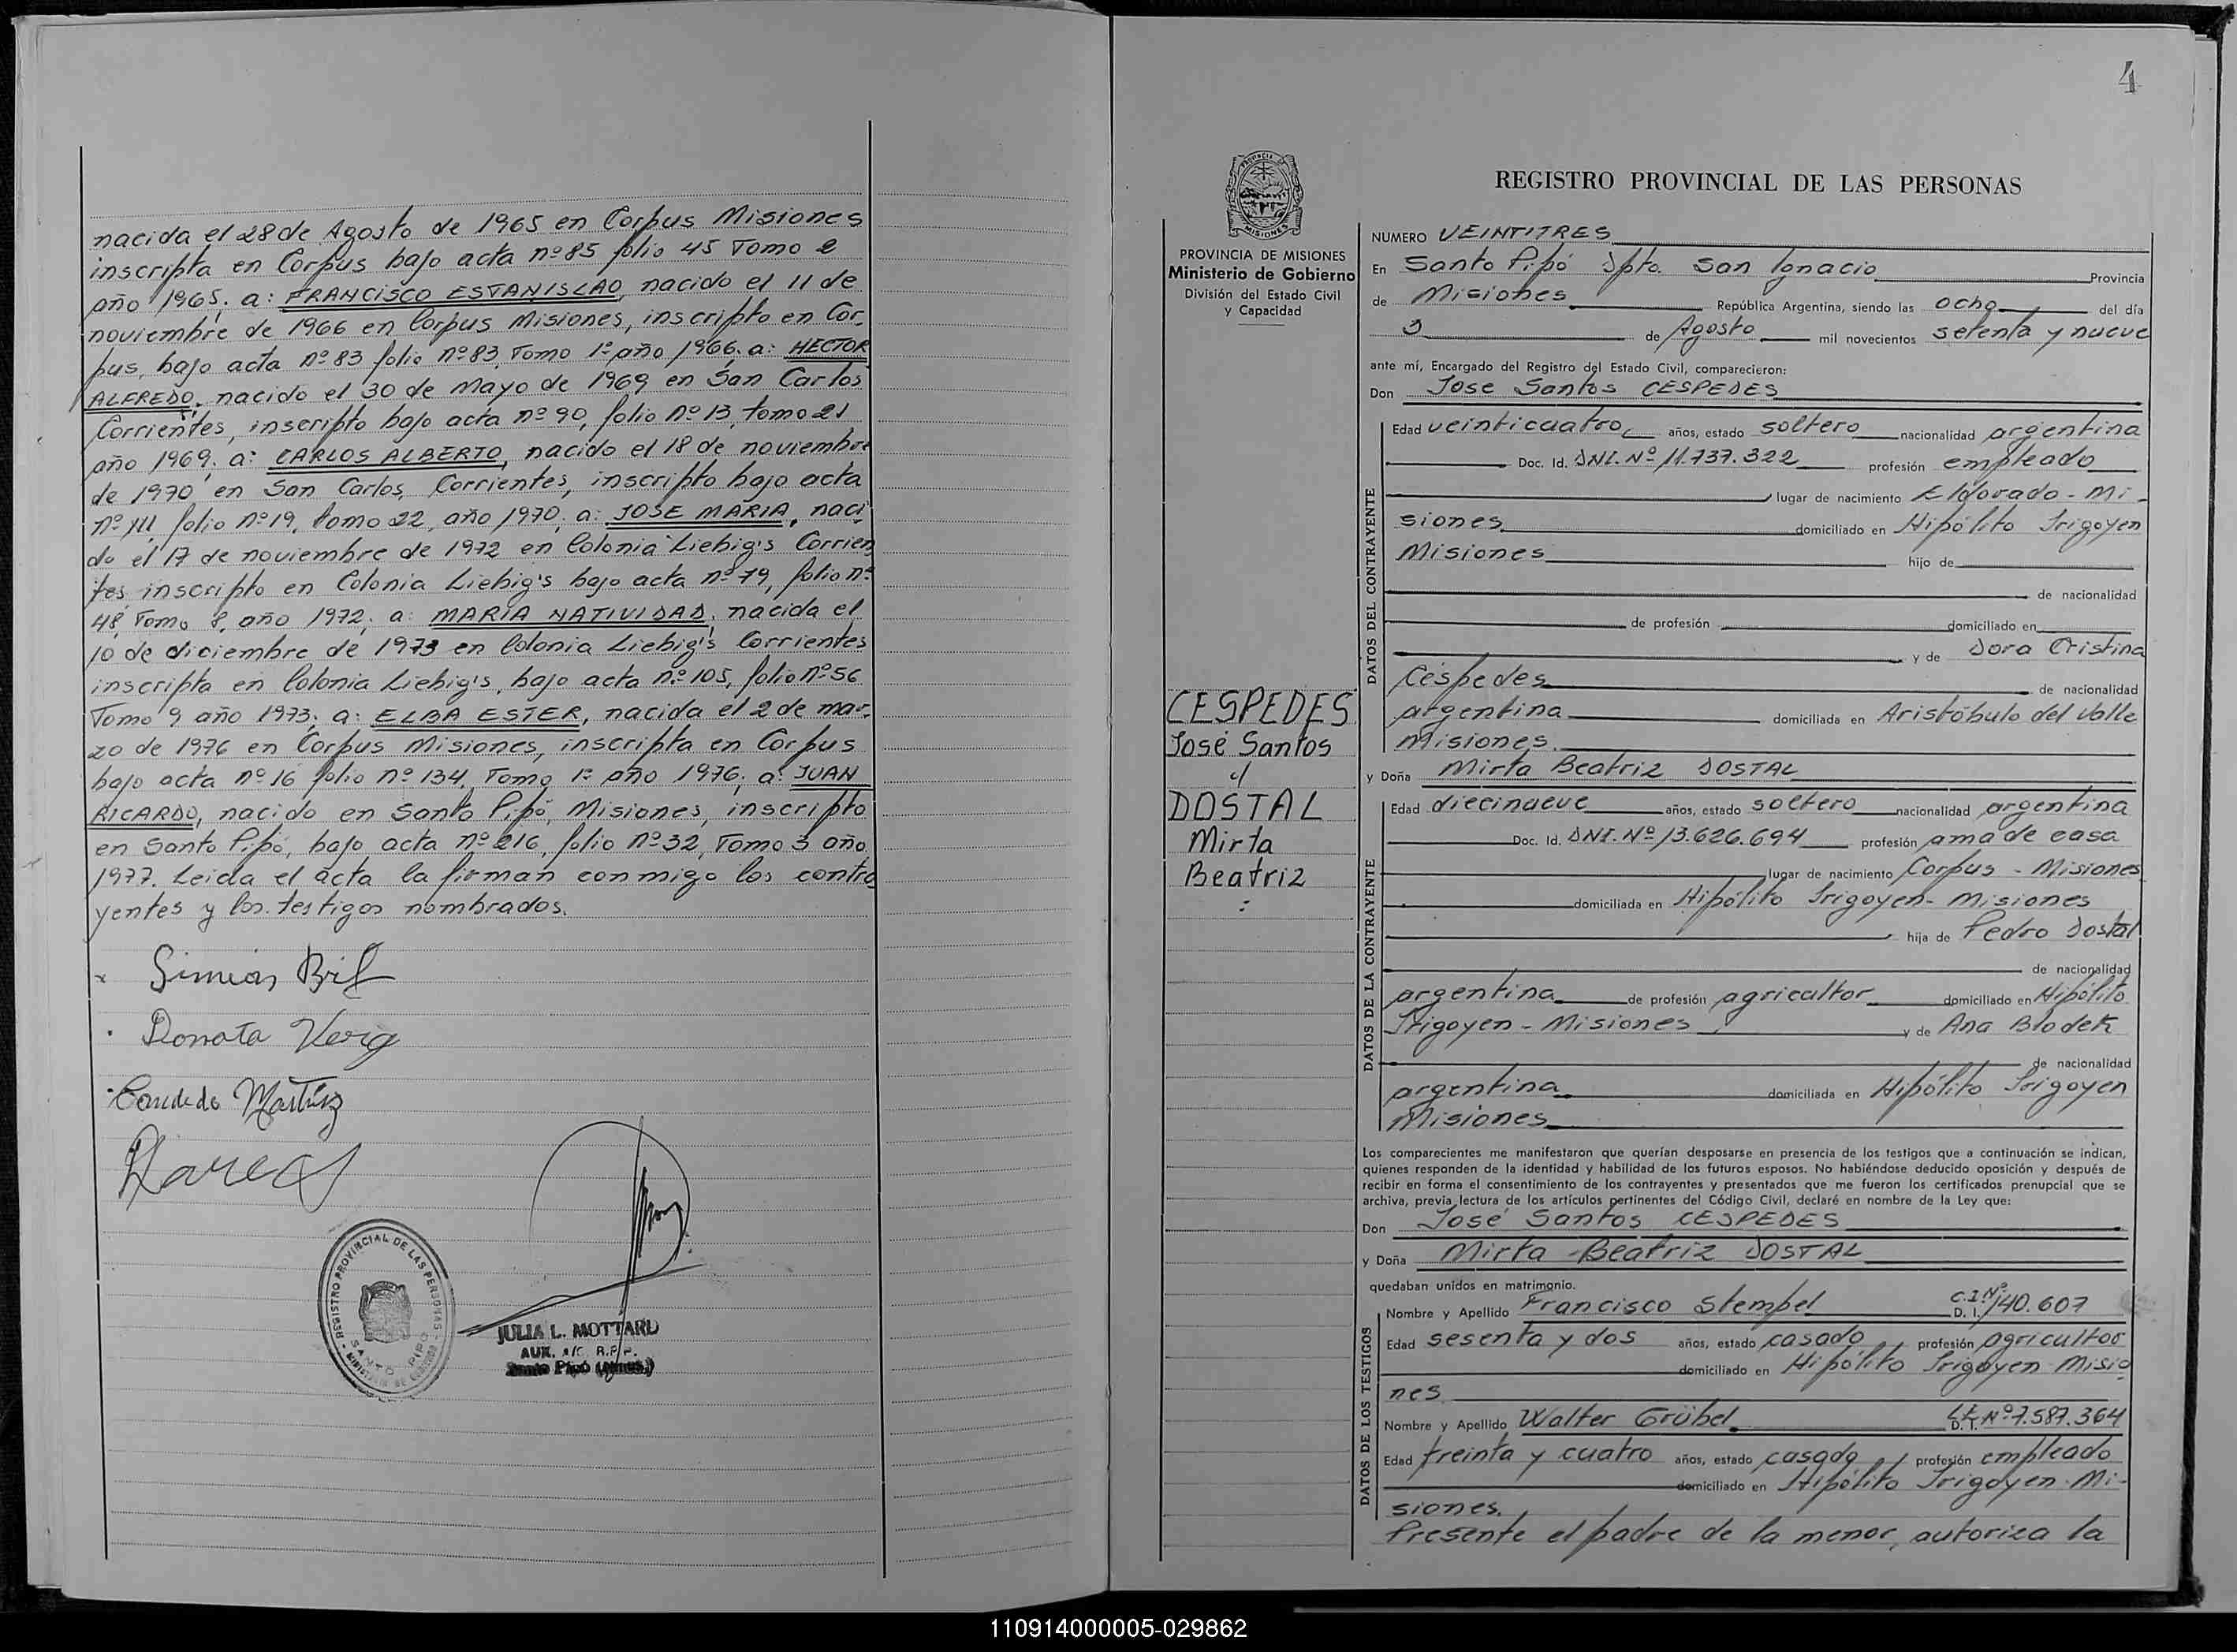 nacida el 28 de Agosto de 1965 en Corpus Misiones
inscripta en Corpus bajo acta nº 85 folio 45 Tomo 2
año 1965; a: FRANCISCO ESTANISLAO, nacido el 11 de
noviembre de 1966 en Corpus Misiones, inscripto en Cor-
pus, bajo acta nº 83 folio nº 83, Tomo 1º año 1966; a: HECTOR
ALFREDO, nacido el 30 de Mayo de 1969 en San Carlos
Corrientes, inscripto bajo acta nº 90, folio nº 13, tomo 21
año 1969; a: CARLOS ALBERTO, nacido el 18 de noviembre
de 1970 en San Carlos, Corrientes, inscripto bajo acta
nº 111, folio nº 19, tomo 22, año 1970; a: JOSE MARIA, naci
do el 17 de noviembre de 1972 en Colonia Liebig's Corrien
tes inscripto en Colonia Liebig's bajo acta nº 79, folio nº
48, Tomo 8, año 1972; a: MARIA NATIVIDAD, nacida el
10 de diciembre de 1973 en Colonia Liebig's Corrientes
inscripta en Colonia Liebig's, bajo acta nº 105, folio nº 56
Tomo 9 año 1973; a: ELBA ESTER, nacida el 2 de mar-
zo de 1976 en Corpus Misiones, inscripta en Corpus
bajo acta nº 16 folio nº 134, Tomo 1º año 1976; a: JUAN
RICARDO, nacido en Santo Pipó, Misiones, inscripto
en Santo Pipó, bajo acta nº 216, folio nº 32, Tomo 3 año
1977. Leida el acta la firman conmigo los contra
yentes y los testigos nombrados.
Donata
REGISTRO PROVINCIAL DE LAS PERSONAS
SANTO PIPO
JULIA L. MOTTARD
AUX. A/C. R.P.P.
Santo Pipó (Mnes.)
4
REGISTRO PROVINCIAL DE LAS PERSONAS
PROVINCIA DE MISIONES
Ministerio de Gobierno
División del Estado Civil
y Capacidad
CESPEDES
José Santos
c/
DOSTAL
Mirta
Beatriz
NUMERO VEINTITRES
En Santo Pipó Dpto. San Ignacio Provincia
de Misiones República Argentina, siendo las ocho del día
3 de Agosto mil novecientos setenta y nueve
ante mí, Encargado del Registro del Estado Civil, comparecieron:
Don Jose Santos CESPEDES
DATOS DEL CONTRAYENTE
Edad veinticuatro años, estado soltero nacionalidad argentina
Doc. Id. DNI. Nº 11.737.322 profesión empleado
lugar de nacimiento Eldorado - Mi-
siones domiciliado en Hipólito Irigoyen
Misiones hijo de
de nacionalidad
de profesión domiciliado en
y de Dora Cristina
Céspedes de nacionalidad
argentina domiciliada en Aristóbulo del Valle
Misiones.
y Doña Mirta Beatriz DOSTAL
DATOS DE LA CONTRAYENTE
Edad diecinueve años, estado soltero nacionalidad argentina
Doc. Id. DNI. Nº 13.626.694 profesión ama de casa
lugar de nacimiento Corpus - Misiones
domiciliada en Hipólito Irigoyen - Misiones
hija de Pedro Dostal
de nacionalidad
argentina de profesión agricultor domiciliado en Hipólito
Irigoyen - Misiones y de Ana Blodek
de nacionalidad
argentina domiciliada en Hipólito Irigoyen
Misiones
Los comparecientes me manifestaron que querían desposarse en presencia de los testigos que a continuación se indican,
quienes responden de la identidad y habilidad de los futuros esposos. No habiéndose deducido oposición y después de
recibir en forma el consentimiento de los contrayentes y presentados que me fueron los certificados prenupcial que se
archiva, previa lectura de los artículos pertinentes del Código Civil, declaré en nombre de la Ley que:
Don José Santos CESPEDES
y Doña Mirta Beatriz DOSTAL
quedaban unidos en matrimonio.
DATOS DE LOS TESTIGOS
Nombre y Apellido Francisco Stempel D. I. C.I. Nº 140.607
Edad sesenta y dos años, estado casado profesión agricultor
domiciliado en Hipólito Irigoyen Misio
nes
Nombre y Apellido Walter Grübel D. I. Nº 7.587.364
Edad treinta y cuatro años, estado casado profesión empleado
domiciliado en Hipólito Irigoyen - Mi-
siones.
Presente el padre de la menor, autoriza la
110914000005-029862